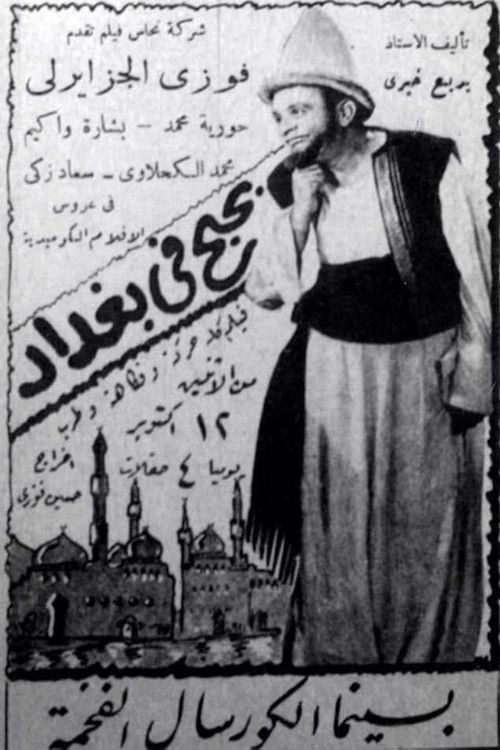 شركة نحاس فيلم تقدم
تأليف الاستاذ
بديع خيرى
فوزى الجزايرلى
حورية محمد - بشارة واكيم
محمد الكحلاوى - سعاد زكى
فى عروس
الافلام الكوميدية
بحبح فى بغداد
فيلم كله مرح وفكاهة وطرب
من الاثنين
١٢ اكتوبر
يوميا ٤ حفلات
اخراج
حسين فوزى
بسينما الكورسال الفخمة